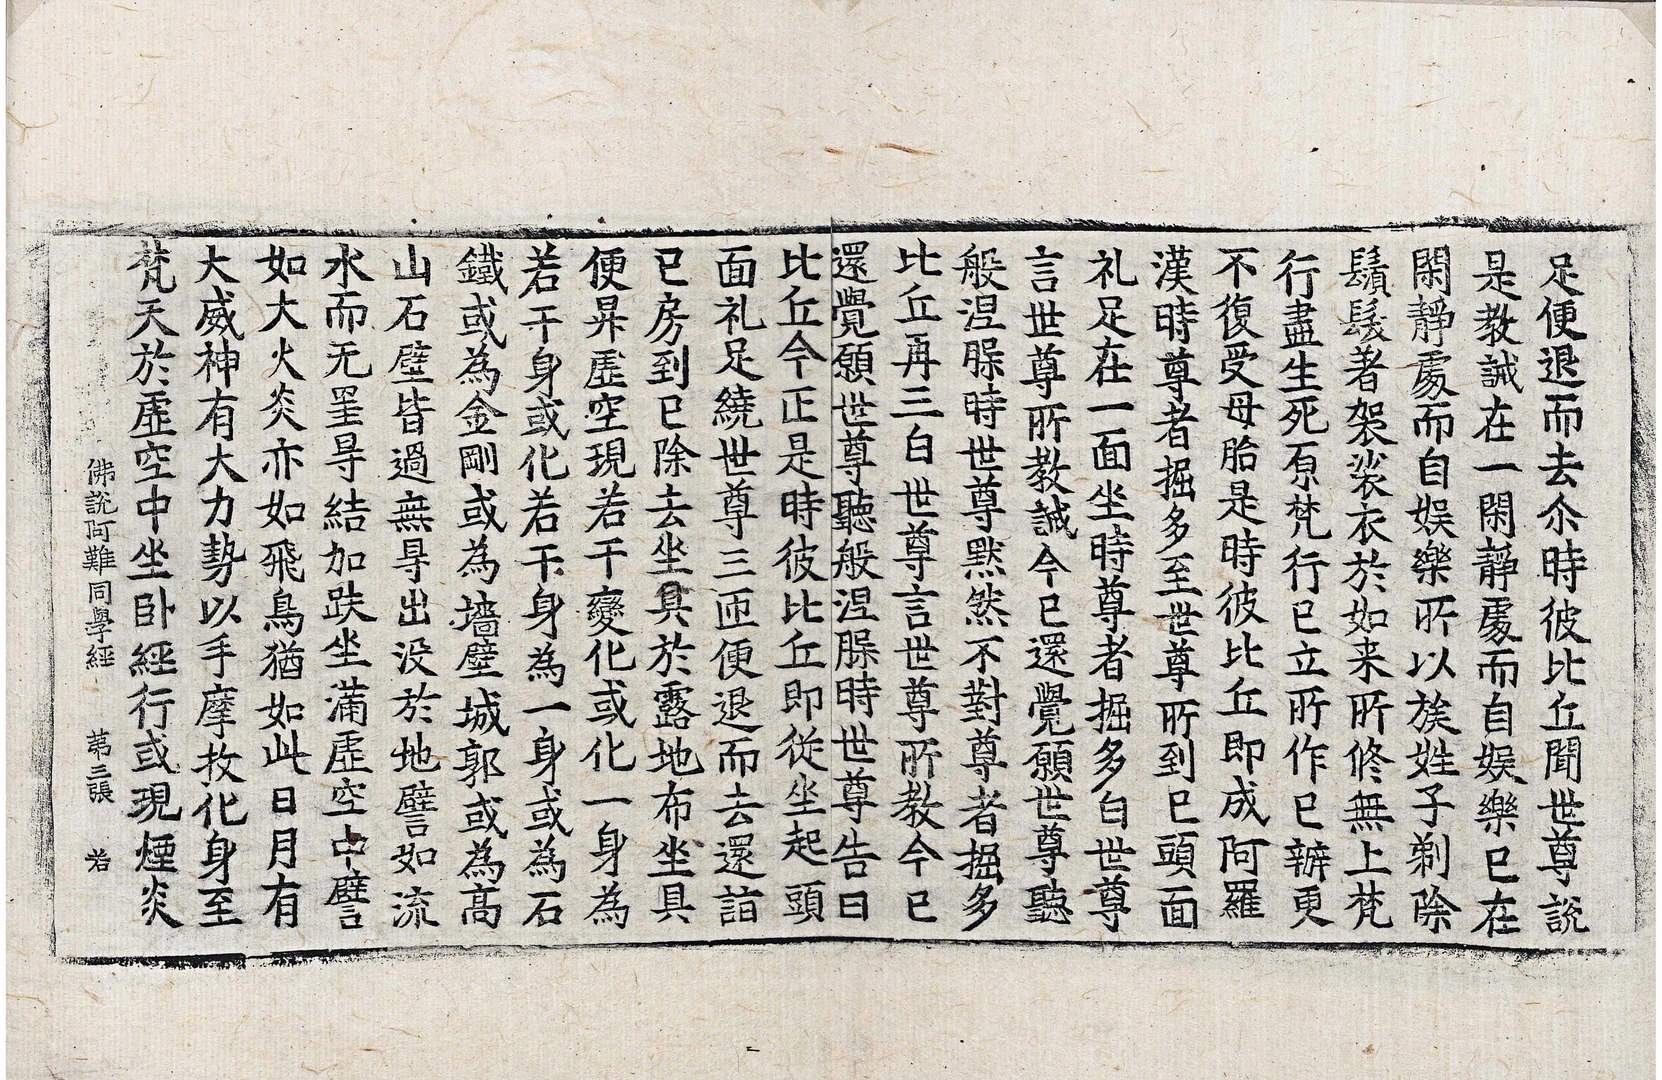 足便退而去尒時彼比丘聞世尊說
是教誡在一閑靜處而自娛樂已在
閑靜處而自娛樂所以族姓子剃除
鬚髮著袈裟衣於如来所修無上梵
行盡生死原梵行已立所作已辦更
不復受母胎是時彼比丘即成阿羅
漢時尊者掘多至世尊所到已頭面
礼足在一面坐時尊者掘多白世尊
言世尊所教誡今已還覺願世尊聽
般涅脲時世尊默然不對尊者掘多
比丘再三白世尊言世尊所教今已
還覺願世尊聽般涅脲時世尊告曰
比丘今正是時彼比丘即從坐起頭
面礼足繞世尊三匝便退而去還詣
已房到已除去坐具於露地布坐具
便昇虛空現若干變化或化一身為
若干身或化若干身為一身或為石
鐵或為金剛或為墻壁城郭或為高
山石壁皆過無㝵出没於地譬如流
水而无罣㝵結加趺坐滿虛空中譬
如大火炎亦如飛鳥猶如此日月有
大威神有大力勢以手摩抆化身至
梵天於虛空中坐卧經行或現煙炎
佛說阿難同學經 第三張 若